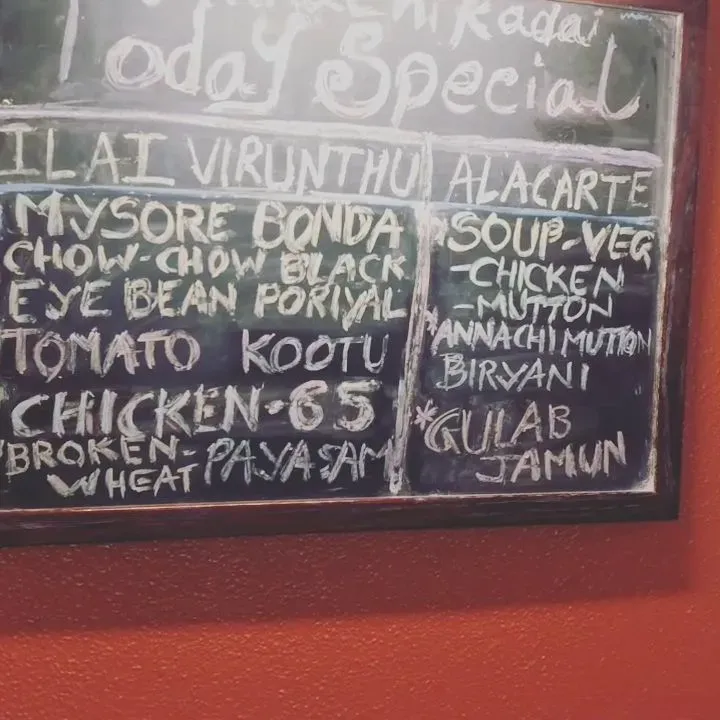 Kadai
Today Special
ILAI VIRUNTHU
MYSORE BONDA
CHOW-CHOW BLACK
EYE BEAN PORIYAL
TOMATO KOOTU
CHICKEN-65
BROKEN-
WHEAT PAYASAM
ALACARTE
*SOUP-VEG
-CHICKEN
-MUTTON
*ANNACHI MUTTON
BIRYANI
*GULAB
JAMUN